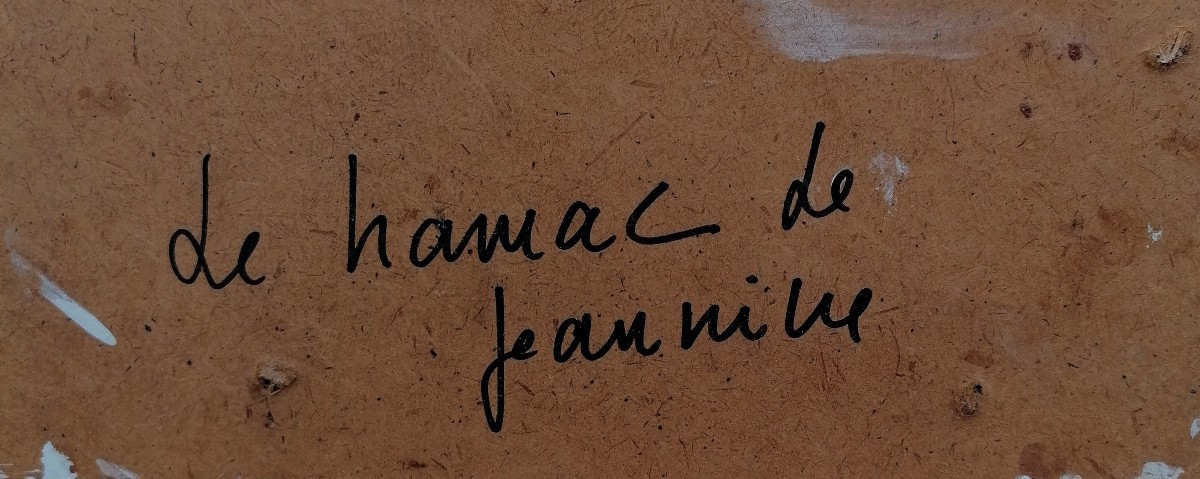 Le hamac de
Jeannine